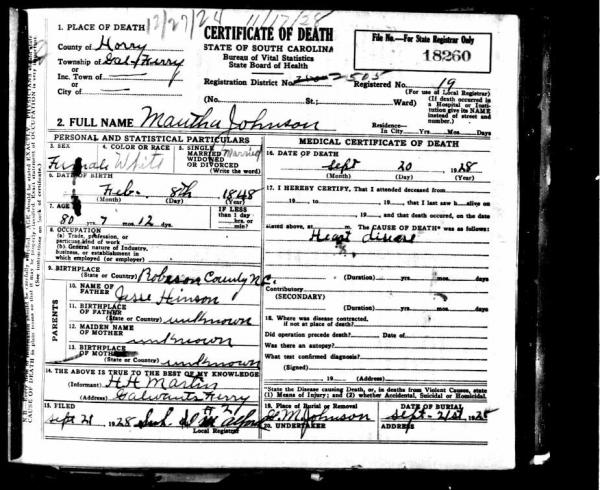 12/27/24
11/17/28
1. PLACE OF DEATH
County of Horry
Township of
or
Inc. Town of
or
City of
CERTIFICATE OF DEATH
STATE OF SOUTH CAROLINA
Bureau of Vital Statistics
State Board of Health
File No.—For State Registrar Only
18260
Registration District No. 2505
Registered No. 19
(For use of Local Registrar)
(No. St.; Ward)
(If death occurred in a Hospital or Institution give its NAME instead of street and number.)
2. FULL NAME Mautha Johnson
Residence—
In City Yrs. Mos. Days
PERSONAL AND STATISTICAL PARTICULARS
3. SEX
Female
4. COLOR OR RACE
White
5. SINGLE
MARRIED
WIDOWED
OR DIVORCED
(Write the word)
Married
6. DATE OF BIRTH
Feb. 8th 1848
(Month) (Day) (Year)
7. AGE
80 yrs. 7 mos. 12 dys.
IF LESS
than 1 day
hrs. or
min?
8. OCCUPATION
(a) Trade, profession, or
particular kind of work
(b) General nature of Industry,
business, or establishment in
which employed (or employer)
9. BIRTHPLACE
(State or Country) Robeson County N.C.
PARENTS
10. NAME OF
FATHER Jesse Hinson
11. BIRTHPLACE
OF FATHER
(State or Country) unknown
12. MAIDEN NAME
OF MOTHER unknown
13. BIRTHPLACE
OF MOTHER
(State or Country) unknown
14. THE ABOVE IS TRUE TO THE BEST OF MY KNOWLEDGE
(Informant) H H Martin
(Address) Galivants Ferry
15. FILED
Sept 21 1928
Local Registrar
MEDICAL CERTIFICATE OF DEATH
16. DATE OF DEATH
Sept 20 1928
(Month) (Day) (Year)
17. I HEREBY CERTIFY, That I attended deceased from
19 , to , 19 , that I last saw h alive on
, 19 , and that death occurred, on the date
stated above, at m. The CAUSE OF DEATH* was as follows:
Heart disease
(Duration) yrs. mos. ds.
Contributory
(SECONDARY)
(Duration) yrs. mos. ds.
18. Where was disease contracted,
if not at place of death?
Did operation precede death? Date of
Was there an autopsy?
What test confirmed diagnosis?
(Signed)
, 19 (Address)
*State the Disease causing Death, or, in deaths from Violent Causes, state
(1) Means of Injury; and (2) whether Accidental, Suicidal or Homicidal.
19. Place of Burial or Removal
M Johnson
DATE OF BURIAL
Sept. 21st 1928
20. UNDERTAKER
ADDRESS